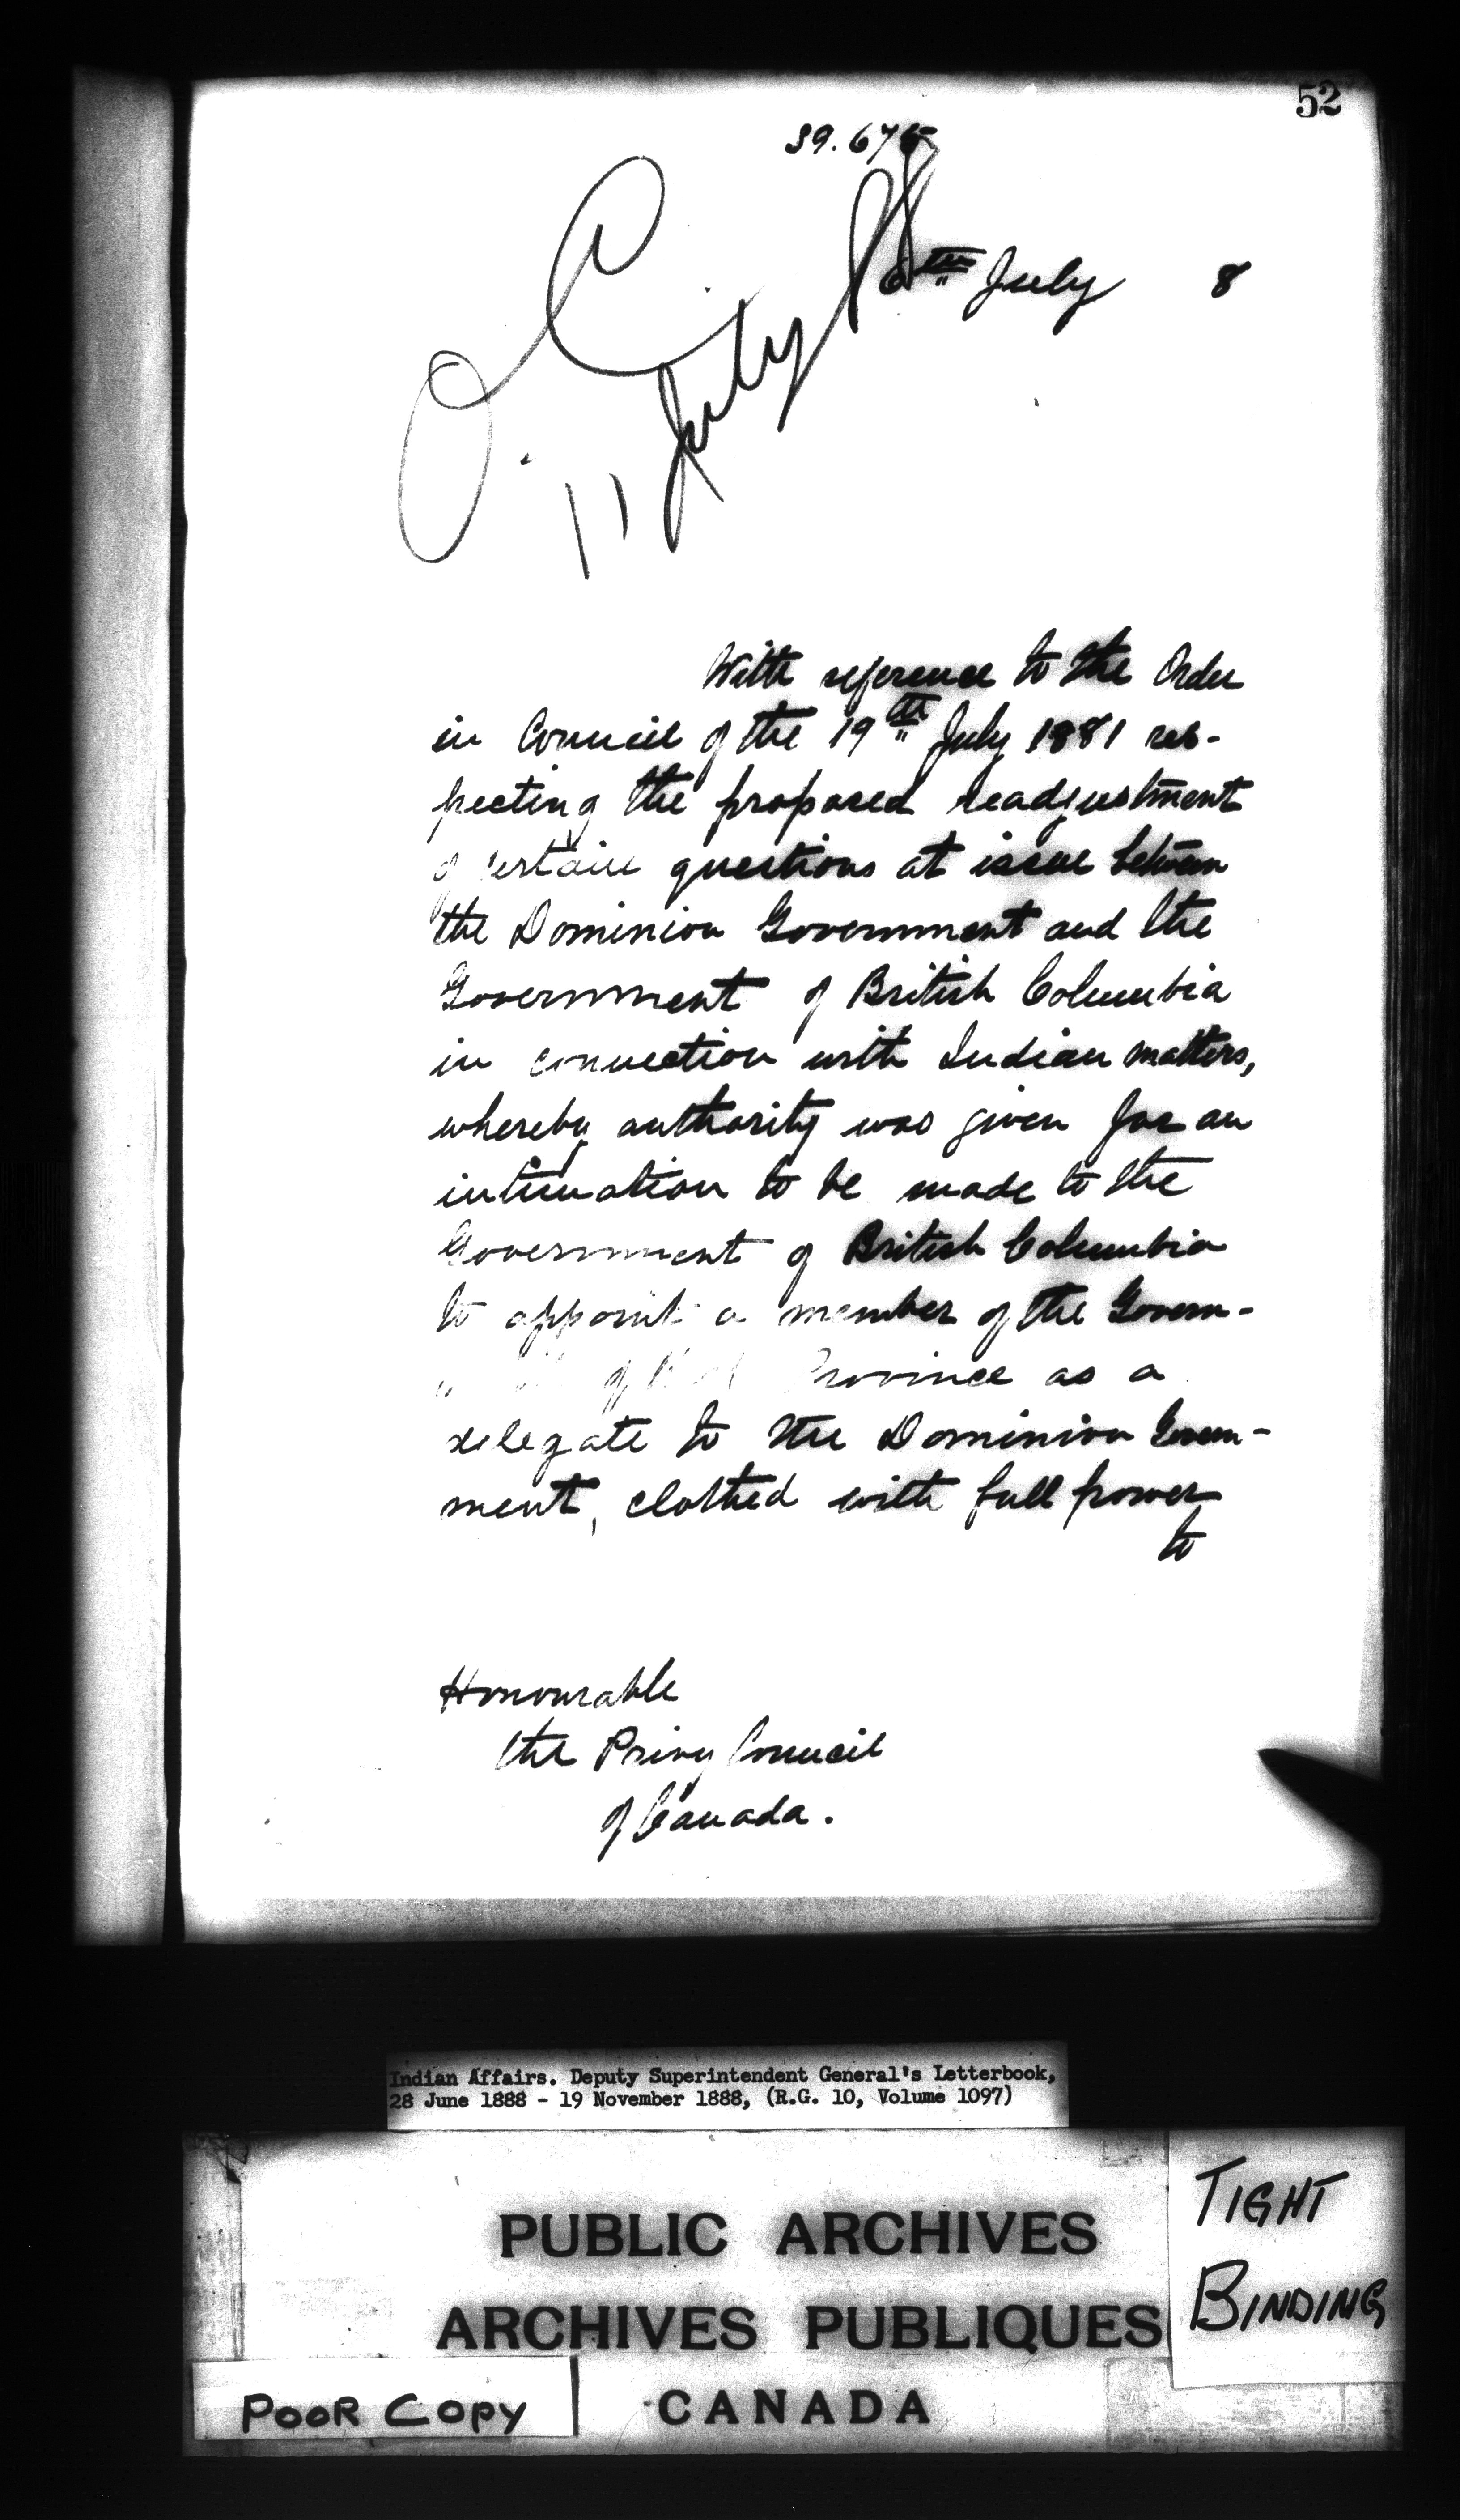 52
39.675
6th July 8
O.C.
11 July 88
With reference to the Order
in Council of the 19th July 1881 res-
pecting the proposed readjustment
of certain questions at issue between
the Dominion Government and the
Government of British Columbia
in connection with Indian matters,
whereby authority was given for an
intimation to be made to the
Government of British Columbia
to appoint a member of the Govern-
of Province as a
delegate to the Dominion Govern-
ment, clothed with full power
to
Honourable
the Privy Council
of Canada.
Indian Affairs. Deputy Superintendent General's Letterbook,
28 June 1888 - 19 November 1888, (R.G. 10, Volume 1097)
PUBLIC ARCHIVES
ARCHIVES PUBLIQUES
CANADA
TIGHT
BINDING
POOR COPY